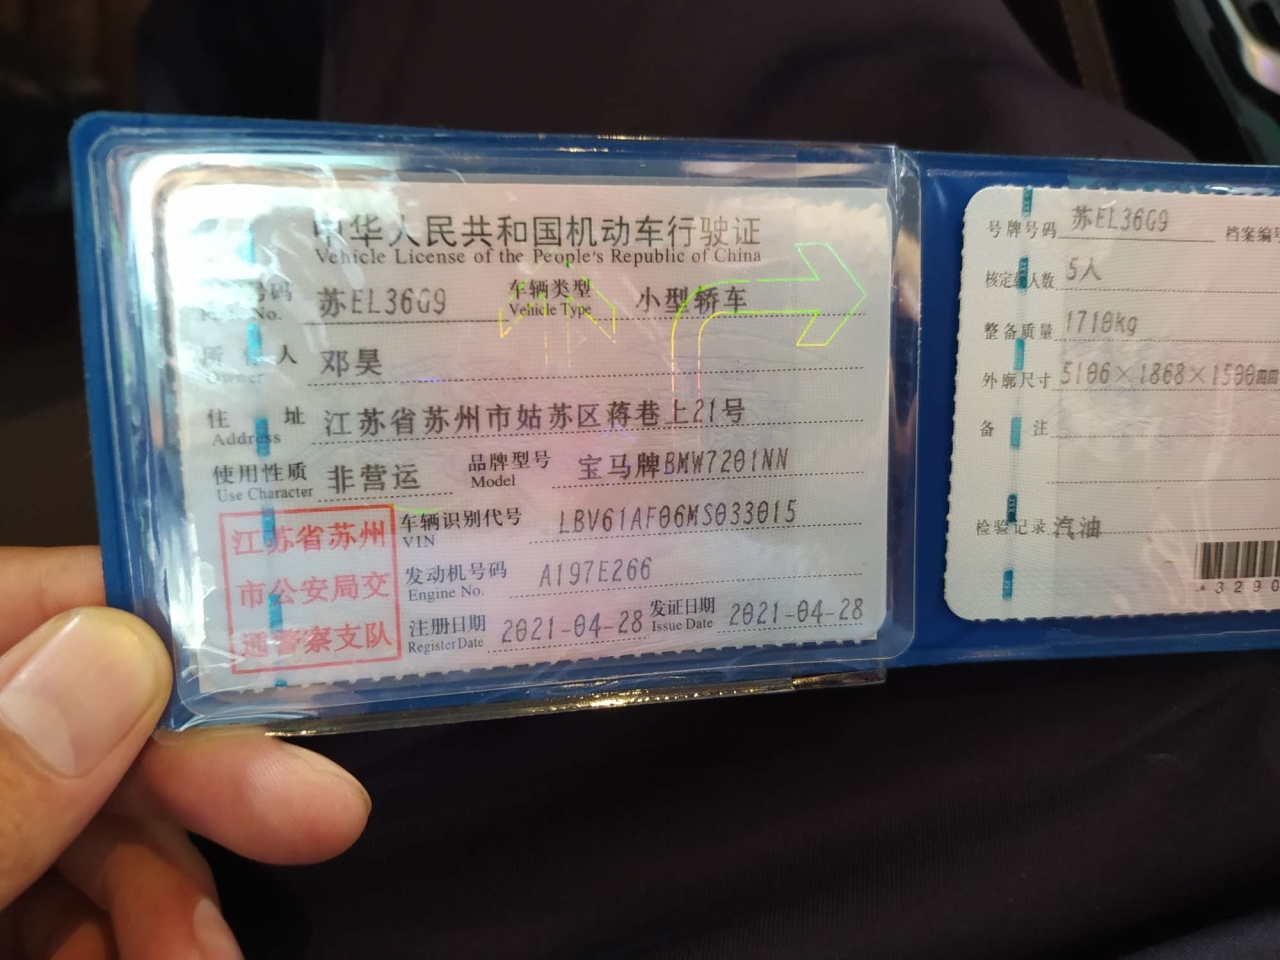 中华人民共和国机动车行驶证
Vehicle License of the People's Republic of China
号码 苏EL36G9 车辆类型 小型轿车
No. Vehicle Type
所有人 邓昊
Owner
住址 江苏省苏州市姑苏区蒋巷上21号
Address
使用性质 非营运 品牌型号 宝马牌BMW7201NN
Use Character Model
江苏省苏州
市公安局交
通警察支队
车辆识别代号 LBV61AF06MS033015
VIN
发动机号码 A197E266
Engine No.
注册日期 2021-04-28 发证日期 2021-04-28
Register Date Issue Date
号牌号码 苏EL36G9 档案编号
核定载人数 5人
整备质量 1710kg
外廓尺寸 5106×1868×1500mm
备注
检验记录 汽油
*3290